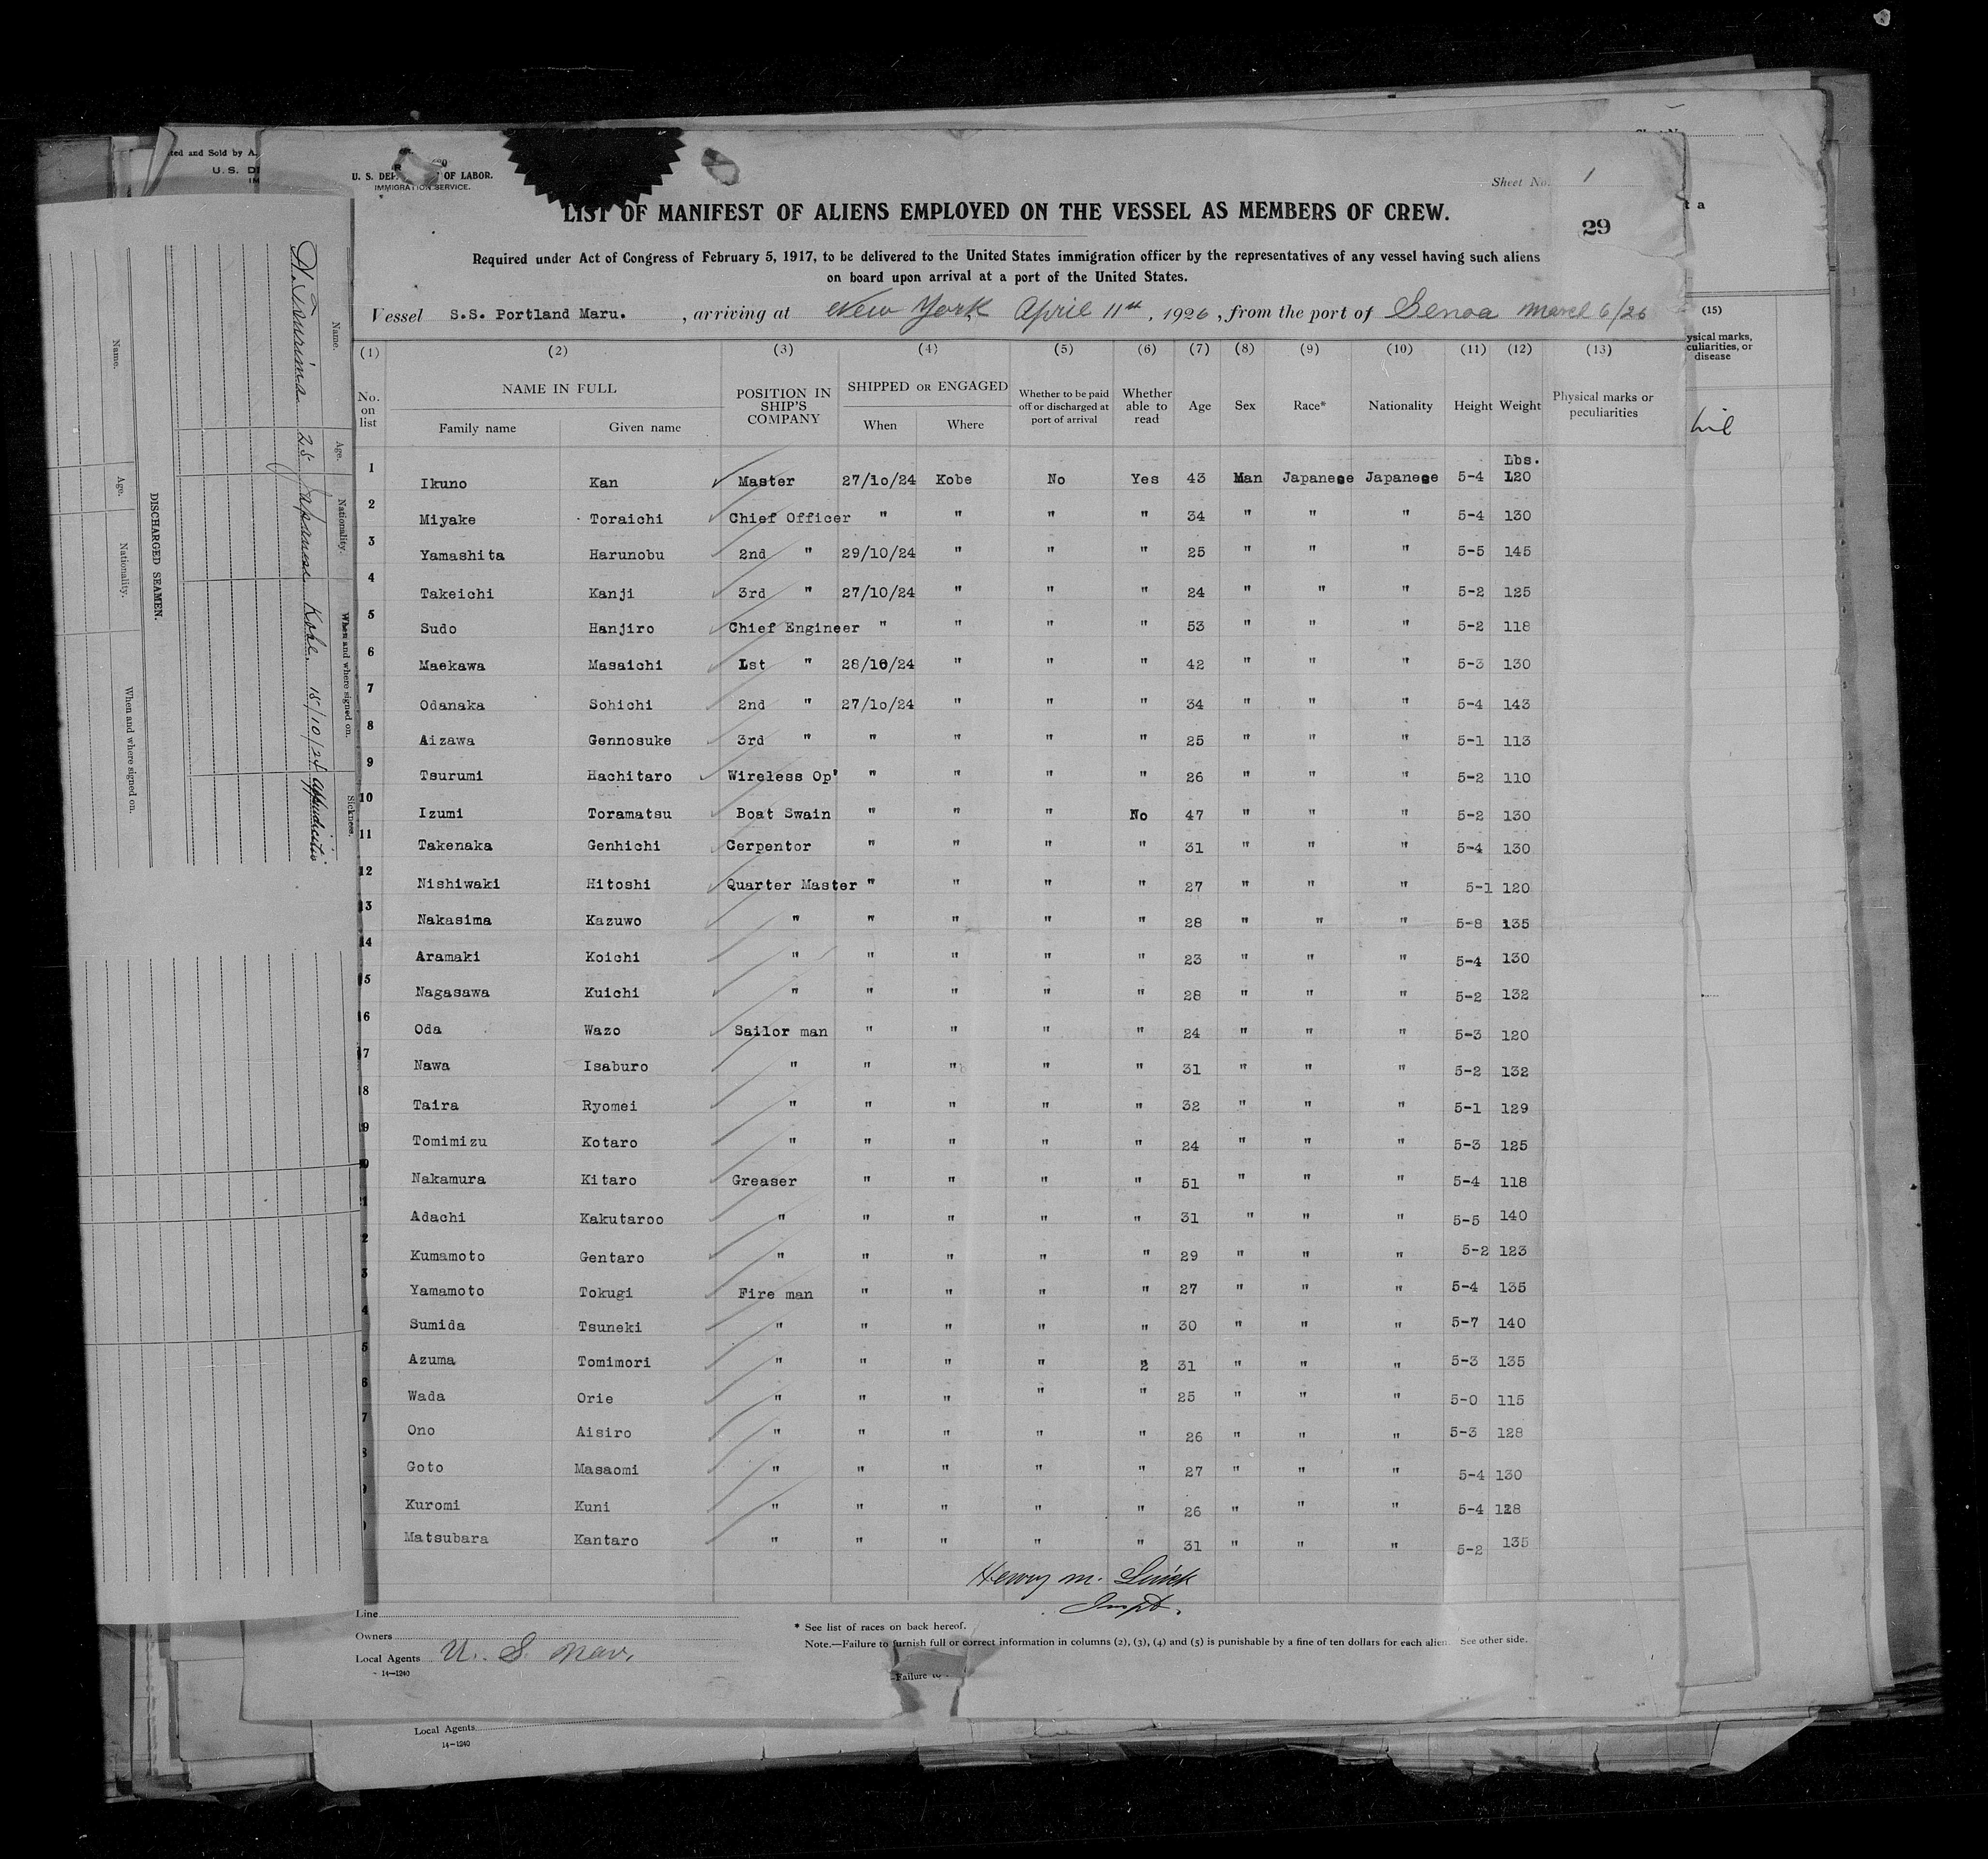 U. S. DEP OF LABOR.
IMMIGRATION SERVICE.
Sheet No. 1
LIST OF MANIFEST OF ALIENS EMPLOYED ON THE VESSEL AS MEMBERS OF CREW.
29
Required under Act of Congress of February 5, 1917, to be delivered to the United States immigration officer by the representatives of any vessel having such aliens
on board upon arrival at a port of the United States.
Vessel S.S. Portland Maru. , arriving at New York April 11th, 1926, from the port of Genoa March 6/26
(1) (2) (3) (4) (5) (6) (7) (8) (9) (10) (11) (12) (13)
No. on list NAME IN FULL Family name Given name POSITION IN SHIP'S COMPANY SHIPPED OR ENGAGED When Where Whether to be paid off or discharged at port of arrival Whether able to read Age Sex Race* Nationality Height Weight Physical marks or peculiarities
Lbs.
1 Ikuno Kan Master 27/10/24 Kobe No Yes 43 Man Japanese Japanese 5-4 120
2 Miyake Toraichi Chief Officer " " " " 34 " " " 5-4 130
3 Yamashita Harunobu 2nd " 29/10/24 " " " 25 " " " 5-5 145
4 Takeichi Kanji 3rd " 27/10/24 " " " 24 " " " 5-2 125
5 Sudo Hanjiro Chief Engineer " " " " 53 " " " 5-2 118
6 Maekawa Masaichi 1st " 28/10/24 " " " 42 " " " 5-3 130
7 Odanaka Sohichi 2nd " 27/10/24 " " " 34 " " " 5-4 143
8 Aizawa Gennosuke 3rd " " " " " 25 " " " 5-1 113
9 Tsurumi Hachitaro Wireless Op' " " " " 26 " " " 5-2 110
10 Izumi Toramatsu Boat Swain " " " No 47 " " " 5-2 130
11 Takenaka Genhichi Cerpentor " " " " 31 " " " 5-4 130
12 Nishiwaki Hitoshi Quarter Master " " " " 27 " " " 5-1 120
13 Nakasima Kazuwo " " " " " 28 " " " 5-8 135
14 Aramaki Koichi " " " " " 23 " " " 5-4 130
5 Nagasawa Kuichi " " " " " 28 " " " 5-2 132
6 Oda Wazo Sailor man " " " " 24 " " " 5-3 120
7 Nawa Isaburo " " " " " 31 " " " 5-2 132
8 Taira Ryomei " " " " " 32 " " " 5-1 129
9 Tomimizu Kotaro " " " " " 24 " " " 5-3 125
0 Nakamura Kitaro Greaser " " " " 51 " " " 5-4 118
1 Adachi Kakutaroo " " " " " 31 " " " 5-5 140
2 Kumamoto Gentaro " " " " " 29 " " " 5-2 123
3 Yamamoto Tokugi Fire man " " " " 27 " " " 5-4 135
4 Sumida Tsuneki " " " " " 30 " " " 5-7 140
5 Azuma Tomimori " " " " 2 31 " " " 5-3 135
6 Wada Orie " " " " " 25 " " " 5-0 115
7 Ono Aisiro " " " " " 26 " " " 5-3 128
8 Goto Masaomi " " " " " 27 " " " 5-4 130
Kuromi Kuni " " " " " 26 " " " 5-4 128
Matsubara Kantaro " " " " " 31 " " " 5-2 135
Henry M.
Inspt.
Line
Owners
Local Agents U. S. Nav.
14—1240
* See list of races on back hereof.
Note.—Failure to furnish full or correct information in columns (2), (3), (4) and (5) is punishable by a fine of ten dollars for each alien. See other side.
Failure to
Local Agents
14—1240
ted and Sold by A.
U. S. D
(15)
ysical marks,
culiarities, or
disease
nil
Name. Age. Nationality. When and where signed on. Sickness.
25 Japanese Kobe. 15/10/25 Appendicitis
DISCHARGED SEAMEN.
Name. Age. Nationality. When and where signed on.